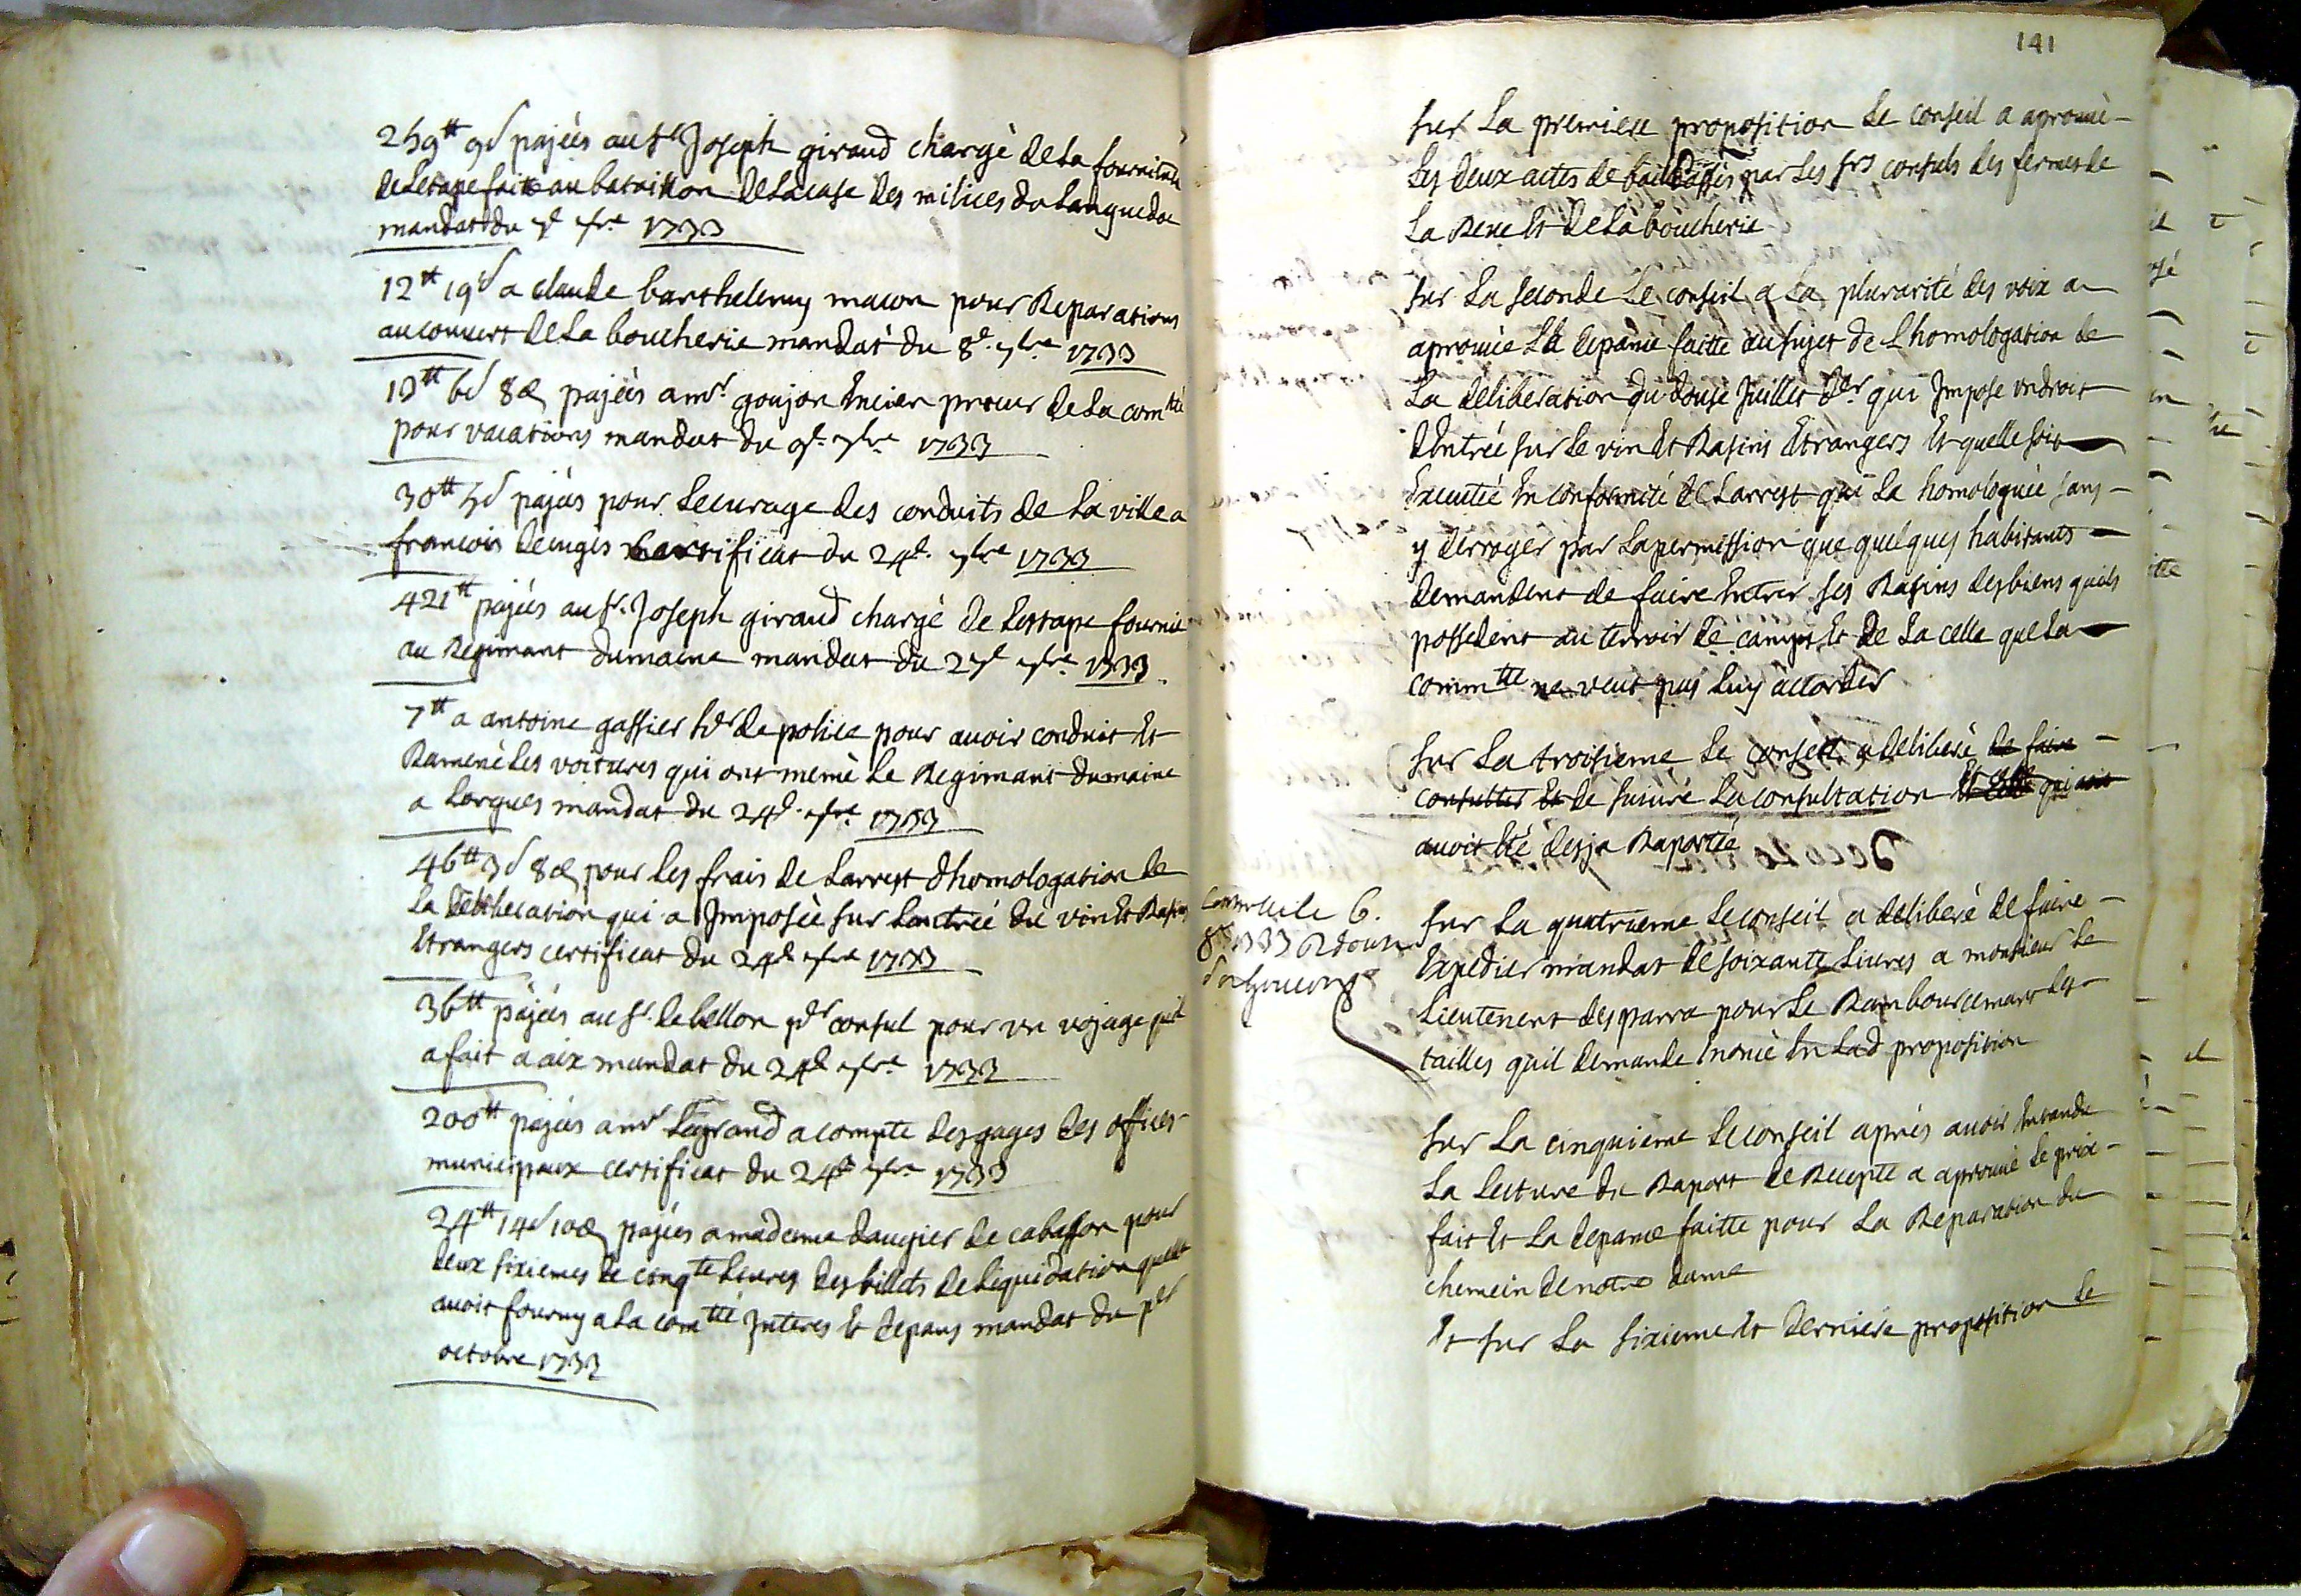 259ᵗᵗ 9s pajées au sʳ Joseph giraud chargé de la fourniture
de Letape faite au bataillon de Lacase des milices du Languedoc
mandat du 7bre 1733
12ᵗᵗ 19s a claude barthelemy macon pour Reparations
au couvert de La boucherie mandat du 8e 7bre 1733
13ᵗᵗ 6s 8d pajées a mr goujon encien procur de La comᵗᵗᵉ
pour vacations mandat du 9e 7bre 1733
30ᵗᵗ 5s pajées pour Lecurage des conduits de La ville a
francois certificat du 24e 7bre 1733
421ᵗᵗ pajées au sʳ Joseph giraud chargé de Lettape fournie
au Regimant dumaine mandat du 7bre 1733
7ᵗᵗ a antoine gassier de police pour avoir conduit et
Ramené Les voitures qui ont mené Le Regimant dumaine
a Lorgues mandat du 24e 7bre 1733
46ᵗᵗ 3s 8d pour Les frais de Larrest dhomologation de
La deliberation qui a Imposée sur Lantrée du vin et Rasins
Etrangers certificat du 24e 7bre 1733
36ᵗᵗ pajées au sr debellon consul pour un vojage quil
a fait a aix mandat du 24e 7bre 1733
200ᵗᵗ pajées a mr Legrand a compte des gages des offices
municipaux certificat du 24e 7bre 1733
24ᵗᵗ 14s 10d pajées a madame daugier de cabasson pour
deux sixiemes de cinqᵗᵉ Livres des billets de Liquidation quelle
avoit fourny a La comᵗᵗᵉ Interes et depans mandat du per
octobre 1733
141
sur La premiere proposition Le conseil a aprouvé
Les deux actes de bail passés par Les srs consuls des fermes de
La Reve et de La boucherie
sur La seconde Le conseil a La plurarité des voix a
aprouvée La depance faitte au sujet de Lhomologation de
La deliberation du douse Juillet der qui Impose un droit
dEntrée sur Le vin et Rasins Etrangers et quelle soit
Executée En conformité de Larrest qui La homologuée sans
y derroger par La permission que quelques habitants
demandent de faire Entrer ses Rasins des biens quils
possedent au terroir de camps et de La celle que La
commᵗᵗᵉ ne veut pas Luy accorder
sur La troisieme Le conseil a deliberé de faire
consulter et de suivre La consultation et qui
avoit Eté desja Raportée
6.
8bre 1733
sur La quatrieme Le conseil a deliberé de faire
Expedier mandat de soixante Livres a monsieur Le
Lieutenent desparra pour Le Rambourcemant des
tailles quil demande Enoncé En Lad proposition
sur La cinquieme Le conseil aprés avoir Entandu
La Lecture du Raport de Recepte a aprouvé Le prix
fait et La depance faitte pour La Reparation du
chemein de notre dame
Et sur La sixieme et derniere proposition Le